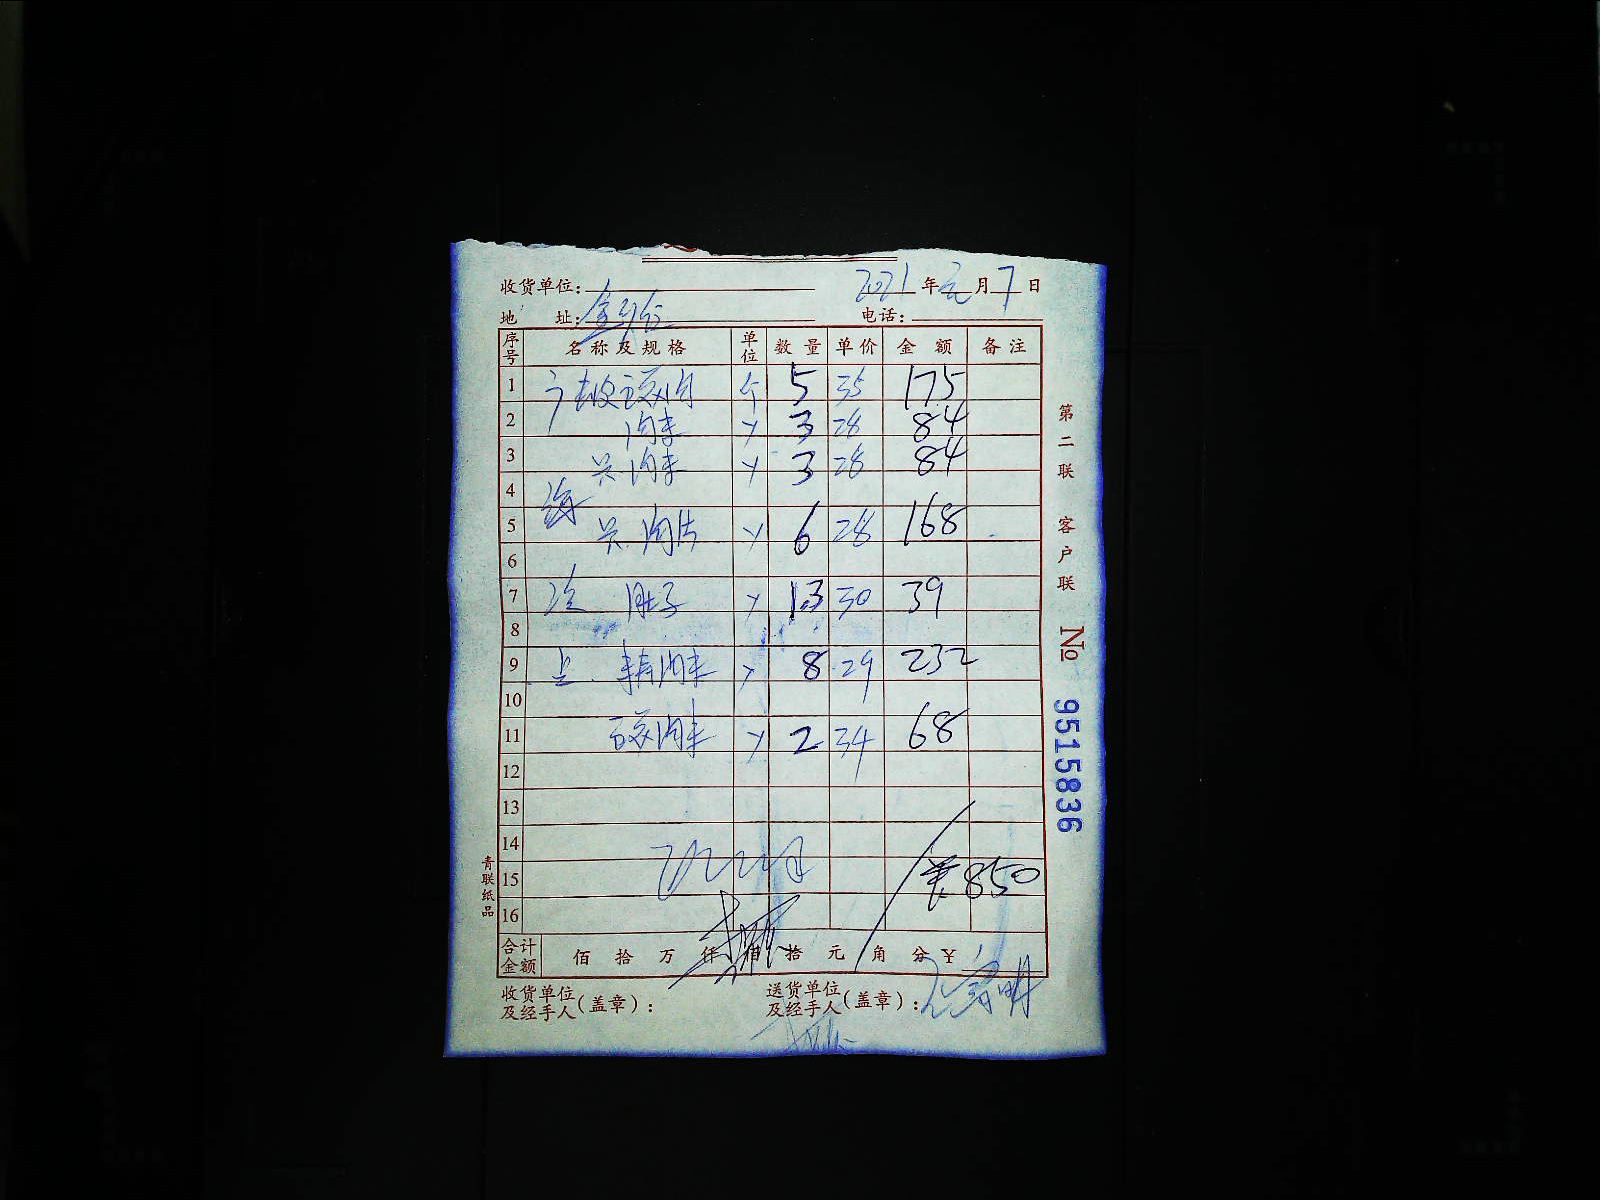 收货单位： 2021年元月7日
地 址： 电话：
序号 名称及规格 单位 数量 单价 金额 备注
1 个 5 35 175
2 肉末 3 28 84
3 肉末 3 28 84
4
5 肉片 6 28 168
6
7 肚子 1.3 30 39
8
9 精肉末 8 29 232
10
11 肉末 2 34 68
12
13
14
15 ¥850
16
合计金额 佰 拾 万 仟 佰 拾 元 角 分 ¥
收货单位及经手人（盖章）： 送货单位及经手人（盖章）：
第二联 客户联 № 9515836
青联纸品